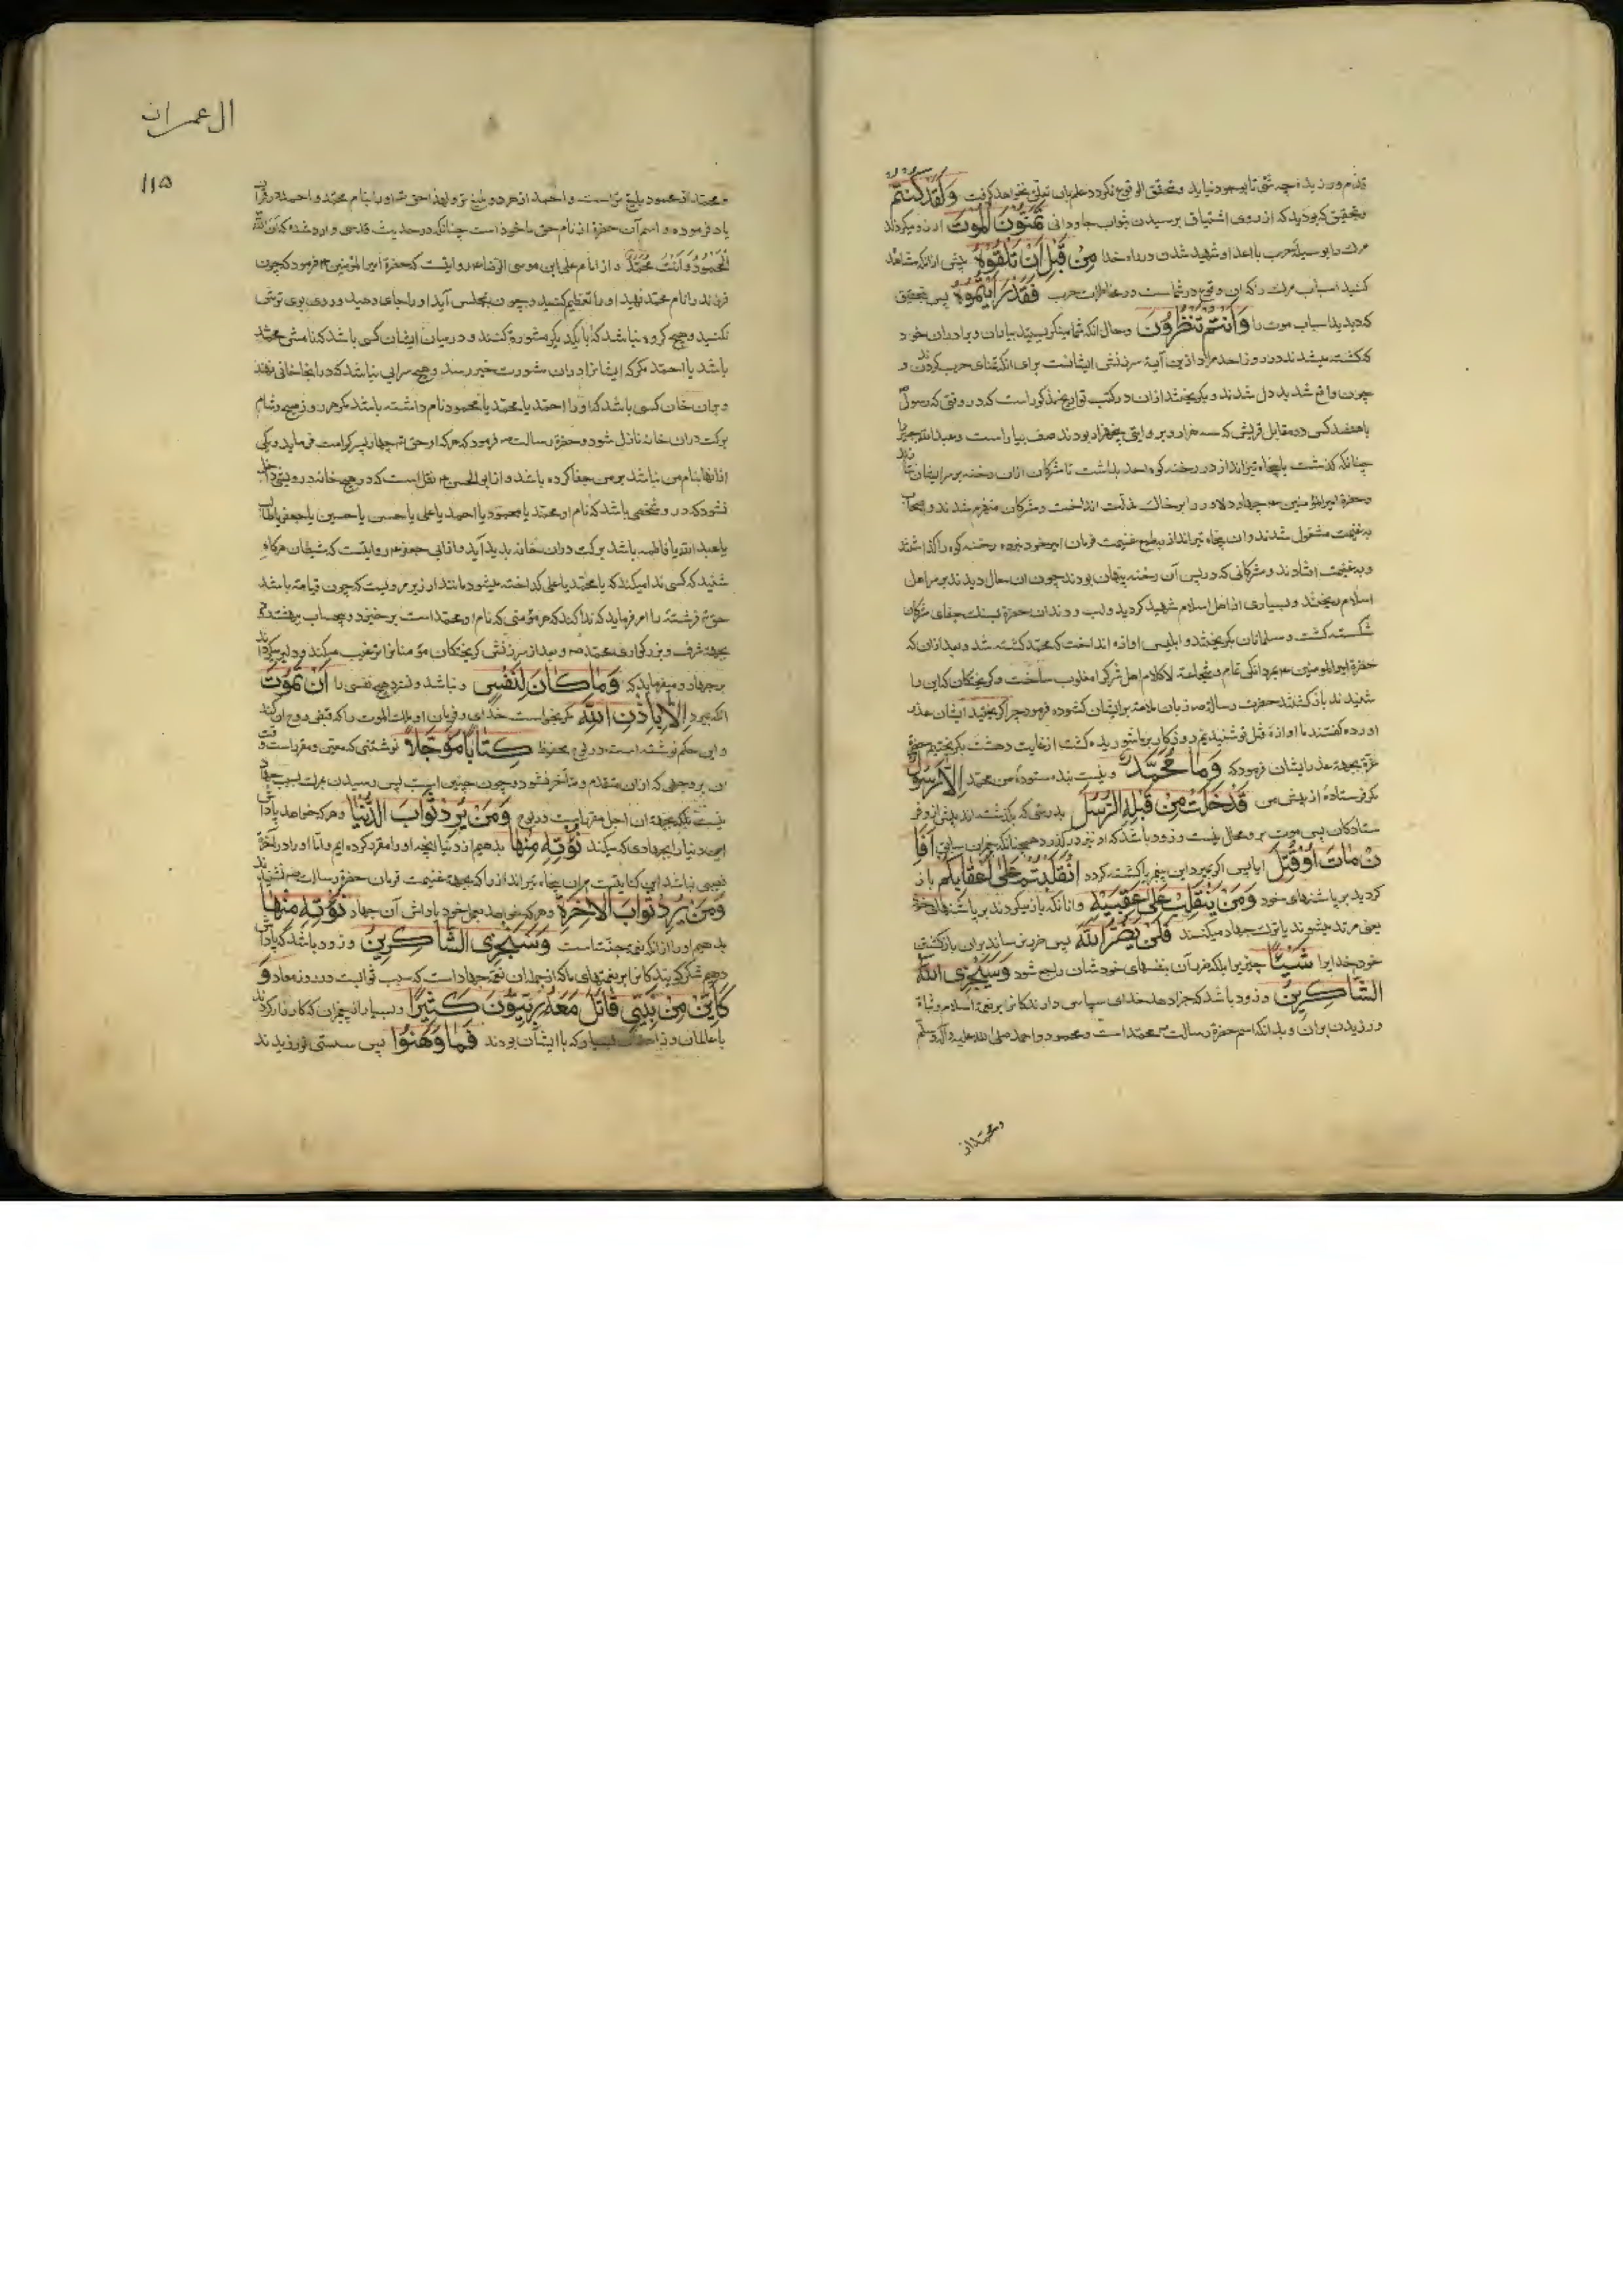 قدم ورزید چه شی تا بوجود نیاید و متحقق الوقوع نکردد علم بان تعلق نخواهد کرفت وَلَقَدْ کُنْتُمْ
و بتحقیق که بودید که از روی اشتیاق برسیدن ثواب جاودانی تَمَنَّوْنَ الْمَوْتَ ارزو میکردید
مرک را بوسیله حرب با اعدا و شهید شدن در راه خدا مِنْ قَبْلِ اَنْ تَلْقَوْهُ پیش از انکه مشاهده
کنید اسباب مرک را که ان وقوع در حرب فَقَدْ رَاَیْتُمُوهُ پس بتحقیق
که دیدید اسباب موت را وَاَنْتُمْ تَنْظُرُونَ و حال انکه شما مینکریستید بیاران و برادران خود
که کشته میشدند در روز احد مراد ازین آیه سرزنش ایشانست برای انکه تمنای حرب کردند و
چون واقع شد بد دل شدند و بکریختند ازان در کتب تواریخ مذکور است که در وقتی که رسول
با هفصد کس در مقابل قریش که سه هزار و بروایتی پنجهزار بودند صف بیاراست و عبدالله جبیر را
چنانکه کذشت با پنجاه تیرانداز در رخنه کوه احد بداشت تا مشرکان ازان رخنه بر سر ایشان نیایند
و حضرة امیرالمؤمنین چهار دلاور را بر خاک مذلت انداخت و مشرکان منهزم شدند و اصحاب
بغنیمت مشغول شدند و ان پنجاه تیرانداز بطمع غنیمت فرمان امیر خود نبرده رخنه کوه را کذاشتند
و بغنیمت افتادند و مشرکانی که در پس آن رخنه پنهان بودند چون ان حال دیدند بر سر اهل
اسلام ریختند و بسیاری از اهل اسلام شهید کردید و لب و دندان حضرة بسنک جفای مشرکان
شکسته کشت و مسلمانان بکریختند و ابلیس اوازه انداخت که محمد کشته شد و بعد ازان که
حضرة امیرالمومنین بمردانکی تمام اهل شرک را مغلوب ساخت و کریختکان که این را
شنیدند باز کشتند حضرت رسالة زبان ملامة بر ایشان کشوده فرمود چرا کریختید ایشان عذر
اورده کفتند ما اوازه قتل تو شنیدیم روزکار بر ما شوریده کشت از غایت دهشت بکریختیم حضرة
عزة بجهة عذر ایشان فرمود که وَمَا مُحَمَّدٌ و نیست بنده ستوده من محمد اِلَّا رَسُولٌ
مکر فرستادهٔ از پیش من قَدْ خَلَتْ مِنْ قَبْلِهِ الرُّسُلُ بدرستی که بکذشته اند پیش از و فر
ستادکان پس موت برو محال نیست و زود باشد که او نیز در کذرد همچنانکه پیغمبران سابق اَفَا
ِنْ مَاتَ اَوْ قُتِلَ ایا پس اکر بمیرد این پیغمبر یا کشته کردد انْقَلَبْتُمْ عَلٰی اَعْقَابِکُمْ باز
کردید بر پاشنهای خود وَمَنْ یَنْقَلِبْ عَلٰی عَقِبَیْهِ و انانکه باز میکردند بر پاشنهای خود
یعنی مرتد میشوند یا ترک جهاد میکنند فَلَنْ یَضُرَّ اللّٰهَ پس ضرر نرسانند بران بازکشتن
خود خدایرا شَیْئًا چیزیرا بلکه ضرر آن بنفسهای خودشان راجع شود وَسَیَجْزِی اللّٰهُ
الشَّاکِرِینَ و زود باشد که جزا دهد خدای سپاس دارندکانرا بر نعمة اسلام و ثباة
ورزیدن بران و بدانکه اسم حضرة رسالت محمد است و محمود و احمد صلی الله علیه و آله و سلم
و محمد از
ال عمران
۱۱۵
و محمد از محمود بلیغ تر است و احمد از هر دو بلیغ تر و لهذا حق تعالی او را بنام محمد و احمد در قرآن
یاد فرموده و اسم آن حضرة از نام حق ماخوذ است چنانکه در حدیث قدسی وارد شده که اَنَا اللّٰهُ
الْمَحْمُودُ وَاَنْتَ مُحَمَّدٌ و از امام علی ابن موسی الرضا روایتست که حضرة امیرالمؤمنین فرمود که چون
فرزند را نام محمد نهید او را تعظیم کنید و چون بمجلس آید او را جای دهید و روی بوی ترش
نکنید و هیچ کروه نباشد که با یکدیکر مشورة کنند و در میان ایشان کسی باشد که نامش محمد
باشد یا احمد مکر که ایشانرا دران مشورت خیر رسد و هیچ سرایی نباشد که در انجا خانی نهند
و بران خان کسی باشد که او را احمد یا محمد یا محمود نام داشته باشد مکر هر روز صبح و شام
برکت دران خانه نازل شود و حضرة رسالت فرمود که هرکه او حق تعالی چهار پسر کرامت فرماید و یکی
از انها بنام من نباشد بر من جفا کرده باشد و از ابوالحسن نقل است که در هیچ خانه درویشی داخل
نشود که درو شخصی باشد که نام او محمد یا محمود یا احمد یا علی یا حسن یا حسین یا جعفر یا طالب
یا عبدالله یا فاطمه باشد برکت دران خانه پدید آید و از ابی جعفر روایتست که شیطان هرکاه
شنید که کسی ندا میکند که یا محمد یا علی کداخته میشود مانند ارزیر مرویست که چون قیامة باشد
حق تعالی فرشته را امر فرماید که ندا کند که هر مؤمنی که نام او محمد است برخیزد و بیحساب ببهشت رود
بجهة شرف و بزرکواری محمد و بعد از سرزنش کریختکان مؤمنانرا ترغیب میکند و دلیر میکرداند
بر جهاد و میفرماید که وَمَا کَانَ لِنَفْسٍ و نباشد و نسزد هیچ نفسی را اَنْ تَمُوتَ
انکه بمیرد اِلَّا بِاِذْنِ اللّٰهِ مکر بخواست خدای و فرمان او ملک الموت را که قبض روح ان کند
و این حکم نوشته است در لوح محفوظ کِتَابًا مُؤَجَّلًا نوشتنی که معین و مقرر است وقت
ان بر وجهی که ازان متقدم و متأخر نشود و چون چنین است پس رسیدن مرک بسبب جهاد
نیست بلکه بجهة ان اجل مقرر است در لوح وَمَنْ یُرِدْ ثَوَابَ الدُّنْیَا و هر که خواهد پاداش
این دنیا را بجهادی که میکند نُؤْتِهِ مِنْهَا بدهیم از دنیا انچه او را مقرر کرده ایم و اما او را در آخرة
نصیبی نباشد این کنایتست بران پنجاه تیرانداز را که بجهة غنیمت فرمان حضرة رسالت نشنیدند
وَمَنْ یُرِدْ ثَوَابَ الْاٰخِرَةِ و هر که خواهد بعمل خود پاداش آن جهان نُؤْتِهِ مِنْهَا
بدهیم او را ازانکه نعیم جنت است وَسَنَجْزِی الشَّاکِرِینَ و زود باشد که پاداش
دهیم شکر کویندکانرا بر نعمتهای ما که از جمله ان نعمة جهاد است که سبب ثوابست در روز معاد وَ
کَاَیِّنْ مِنْ نَبِیٍّ قَاتَلَ مَعَهُ رِبِّیُّونَ کَثِیرًا و بسیار از پیغمبران که کارزار کردند
با عالمان و زاهدان بسیار که با ایشان بودند فَمَا وَهَنُوا پس سستی نورزیدند